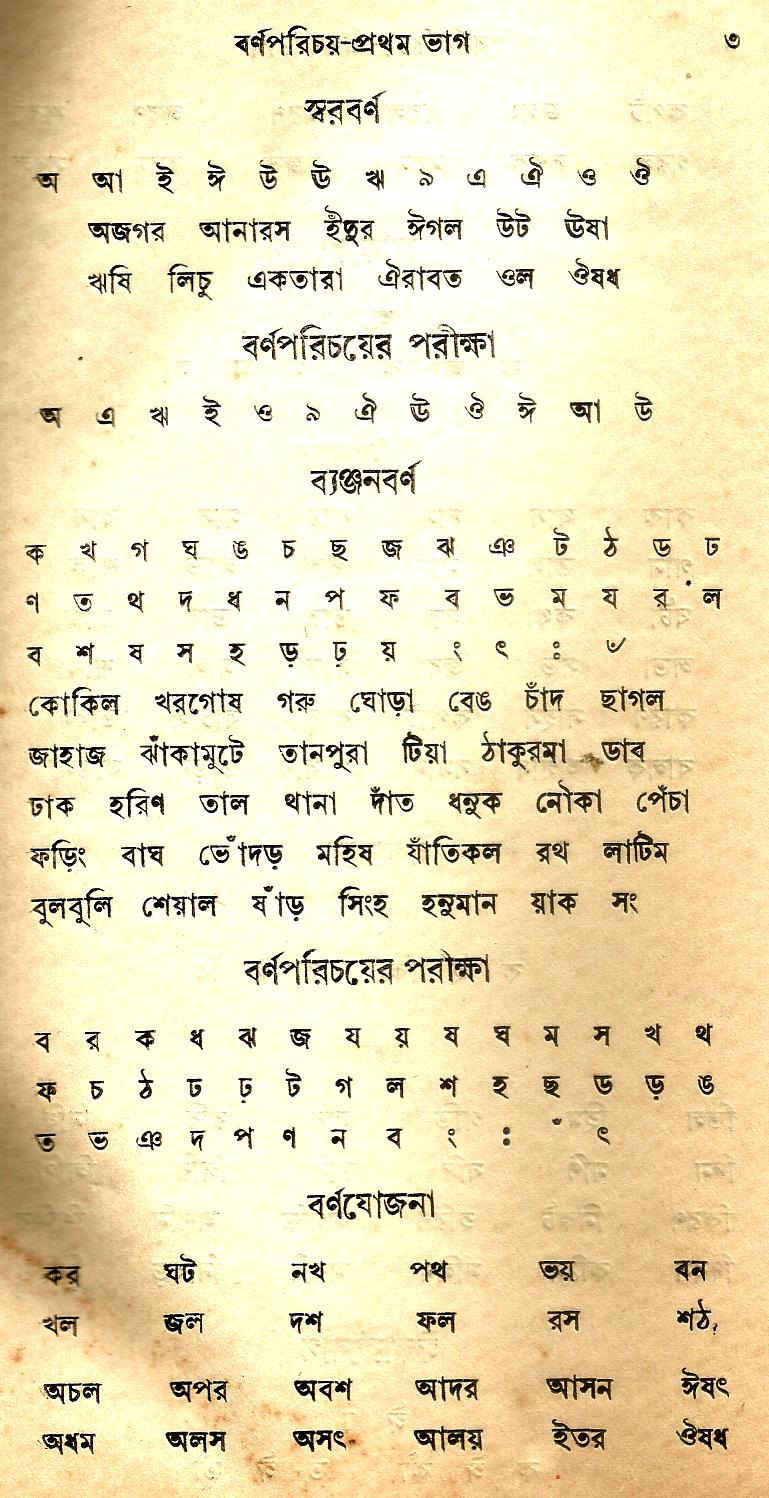 বর্ণপরিচয়-প্রথম ভাগ ৩
স্বরবর্ণ
অ আ ই ঈ উ ঊ ঋ ঌ এ ঐ ও ঔ
অজগর আনারস ইঁদুর ঈগল উট ঊষা
ঋষি লিচু একতারা ঐরাবত ওল ঔষধ
বর্ণপরিচয়ের পরীক্ষা
অ এ ঋ ই ও ঌ ঐ ঊ ঔ ঈ আ উ
ব্যঞ্জনবর্ণ
ক খ গ ঘ ঙ চ ছ জ ঝ ঞ ট ঠ ড ঢ
ণ ত থ দ ধ ন প ফ ব ভ ম য র ল
ব শ ষ স হ ড় ঢ় য় ং ৎ ঃ ঁ
কোকিল খরগোষ গরু ঘোড়া বেঙ চাঁদ ছাগল
জাহাজ ঝাঁকামুটে তানপুরা টিয়া ঠাকুরমা ডাব
ঢাক হরিণ তাল থানা দাঁত ধনুক নৌকা পেঁচা
ফড়িং বাঘ ভোঁদড় মহিষ যাঁতিকল রথ লাটিম
বুলবুলি শেয়াল ষাঁড় সিংহ হনুমান য়াক সং
বর্ণপরিচয়ের পরীক্ষা
ব র ক ধ ঝ জ য য় ষ ঘ ম স খ থ
ফ চ ঠ ঢ ঢ় ট গ ল শ হ ছ ড ড় ঙ
ত ভ ঞ দ প ণ ন ব ং ঃ ঁ ৎ
বর্ণযোজনা
কর ঘট নখ পথ ভয় বন
খল জল দশ ফল রস শঠ,
অচল অপর অবশ আদর আসন ঈষৎ
অধম অলস অসৎ আলয় ইতর ঔষধ